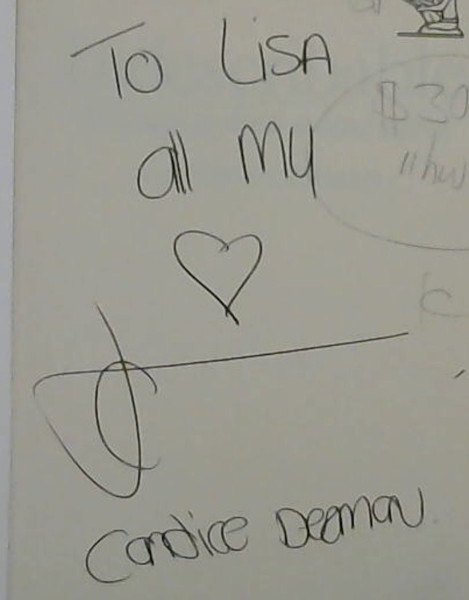 To LiSA
all my
Candice Deemon
$30
"hw